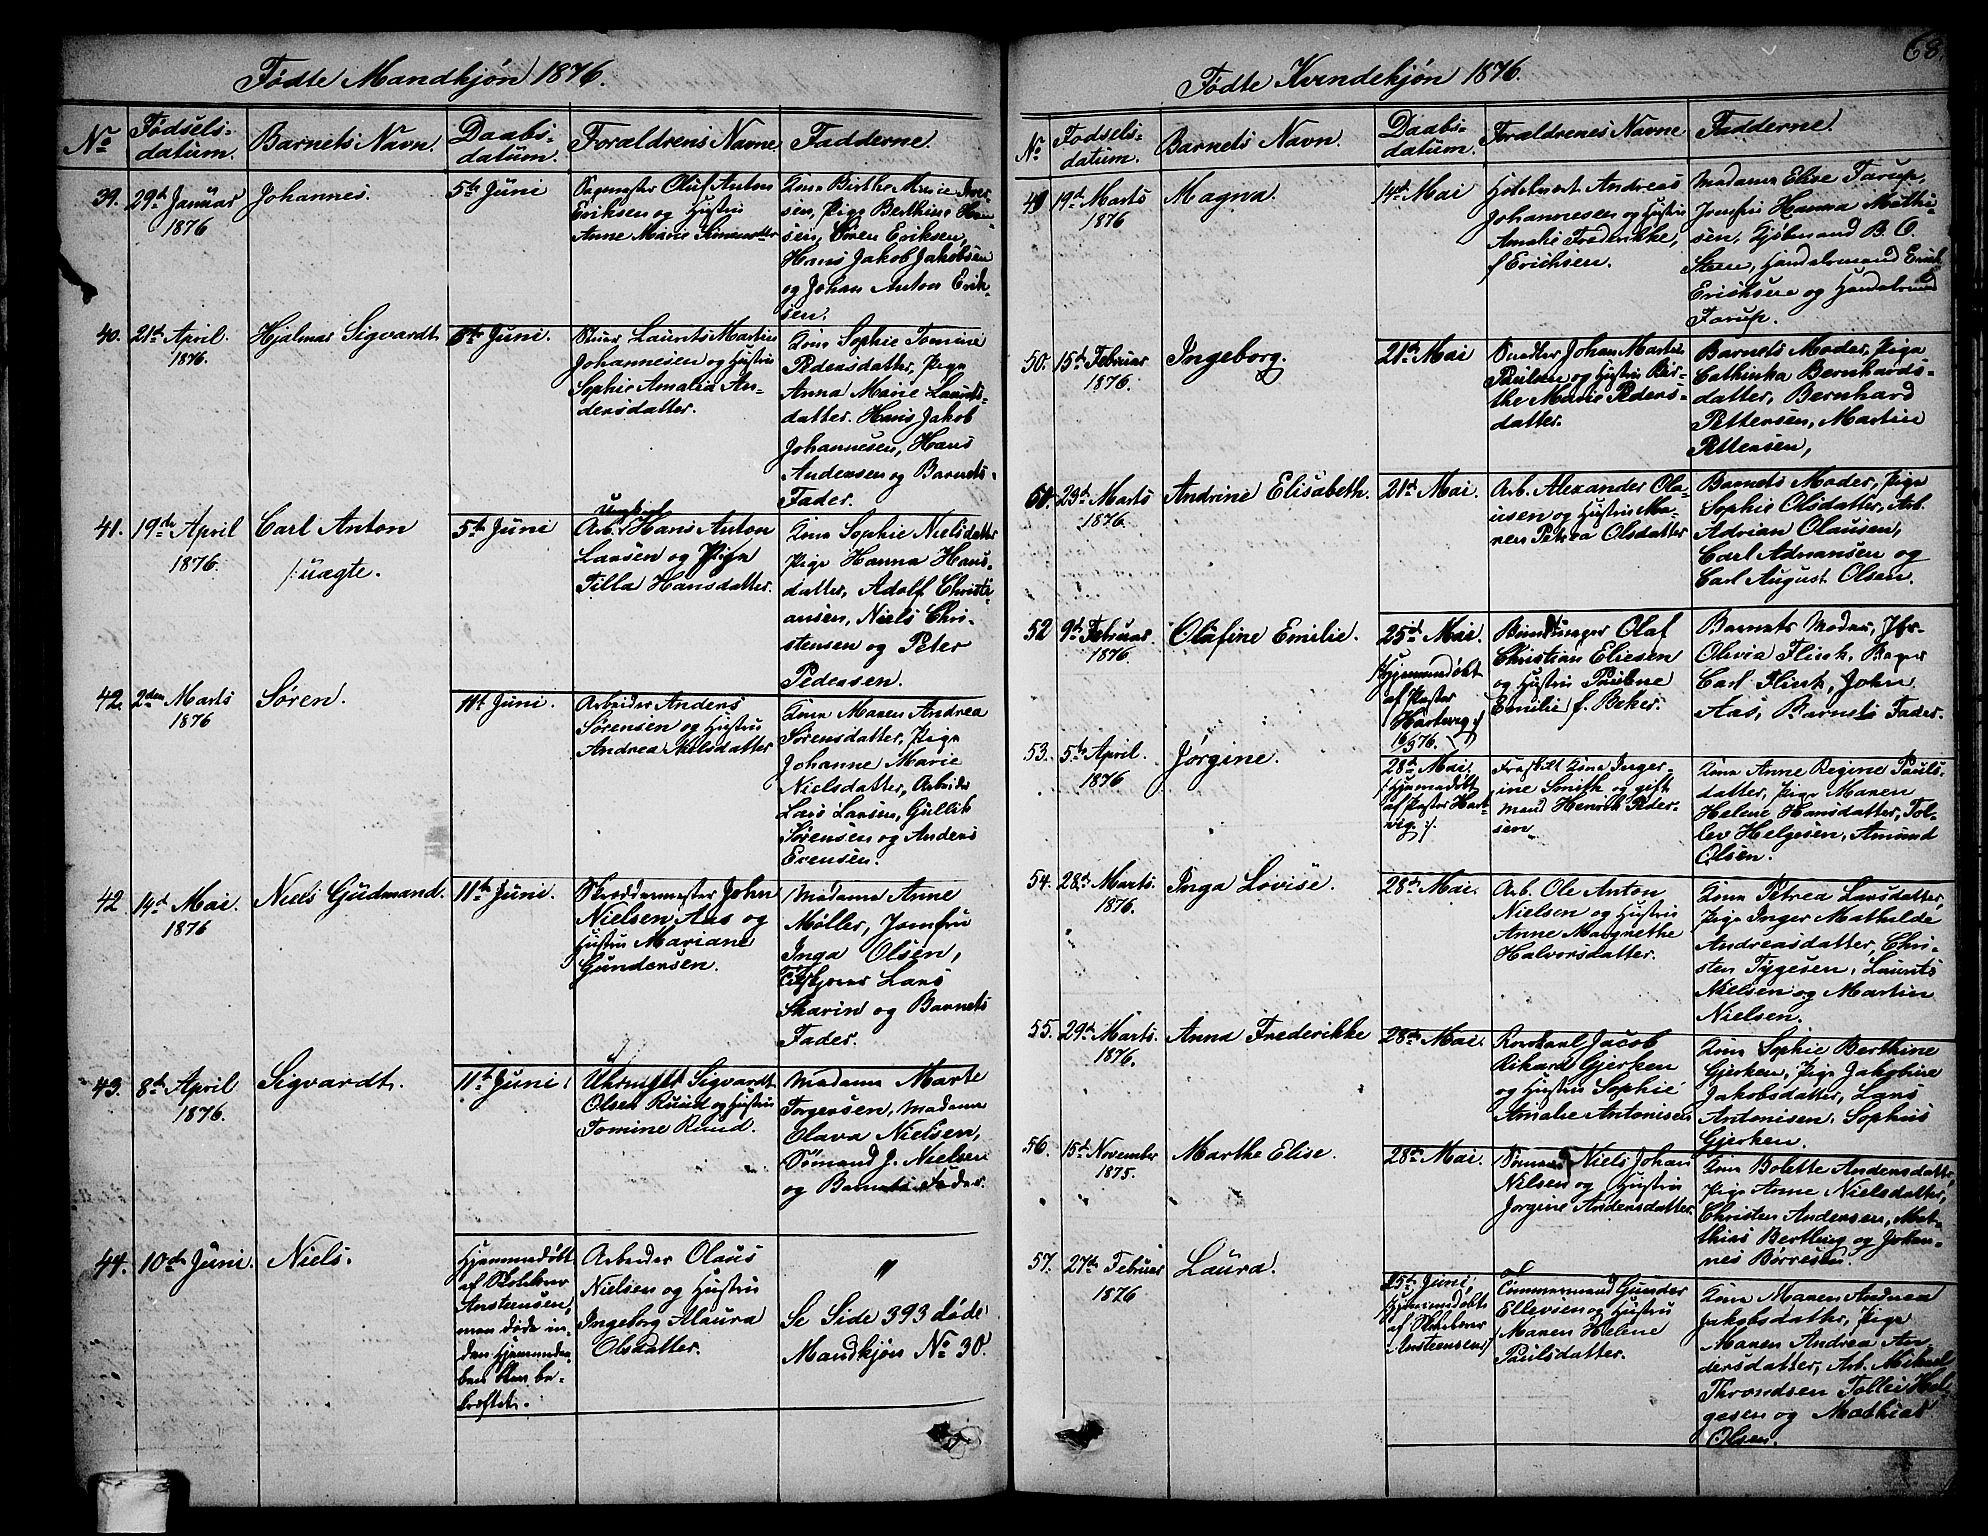 Fødte Mandkjøn 1876.
No
Fødsels-
datum.
Barnets Navn.
Daabs-
datum.
Forældrens Navne
Fadderne.
39.
29de Januar
1876
Johannes.
5te Juni
Sagmester Oluf Anton
Eriksen og Hustru
Anne Marie Simensdatter
Kone Birthe Marie Iver-
sen, Pige Berthine Han-
sen, Søren Eriksen,
Hans Jakob Jakobsen
og Johan Anton Erik-
sen.
40.
21de April.
1876.
Hjalmar Sigvardt.
5te Juni.
Stuer Laurits Martin
Johannesen og Hustru
Sophie Amalia An-
dersdatter.
Kone Sophie Tomine
Pedersdatter, Pige
Anna Marie Laurits-
datter. Hans Jakob
Johannesen, Hans
Andersen og Barnets
Fader.
41.
19de April
1876.
Carl Anton
/: uægte.
5te Juni
ungkarl
Arb. Hans Anton
Larsen og Pige
Tilla Hansdatter.
Kone Sophie Nielsdatter
Pige Hanna Hans-
datter, Adolf Christi-
ansen, Niels Chri-
stensen og Peter
Pedersen.
42.
2den Marts
1876
Søren.
11te Juni.
Arbeider Anders
Sørensen og Hustru
Andrea Nielsdatter
Kone Maren Andrea
Sørensdatter, Pige
Johanne Marie
Nielsdatter, Arbeider
Lars Larsen, Gullik
Sørensen og Anders
Evensen.
42
14de Mai.
1876
Niels Gudmand.
11te Juni.
Skræddermester John
Nielsen Aas og
Hustru Mariane
Gundersen.
Madame Anne
Møller, Jomfru
Inga Olsen,
Lars
Skarin og Barnets
Fader.
43.
8de April
1876.
Sigvardt.
11te Juni
Uhrmager Sigvardt
Olsen Ruud og Hustru
Tomine Ruud.
Madame Marte
Torgersen, Madame
Olava Nielsen,
Sømand J. Nielsen
og Barnets Fader.
44.
10de Juni.
Niels.
Hjemmedøbt
af Klokker
Ansteensen,
men døde in-
den Hjemmedaa-
ben blev be-
kræftet.
Arbeider Olaus
Nielsen og Hustru
Ingeborg Maura
Olsdatter.
"
Se Side 393 døde
Mandkjøn No 30.
68.
Fødte Kvindekjøn 1876.
No
Fødsels-
datum.
Barnets Navn.
Daabs-
datum.
Forældrenes Navne
Fadderne.
49
19de Marts
1876
Magna.
14de Mai
Hotelvert Andreas
Johannesen og Hustru
Amalie Frederikke,
f. Erichsen.
Madame Elise Tarup,
Jomfru Hanna Mathi-
sen, Kjøbmand B. O.
Steen, Handelsmand Erik
Erichsen og Handelsmand
Tarup.
50.
15de Februar
1876.
Ingeborg.
21de Mai
Snedker Johan Martin
Paulsen og Hustru Bir-
the Marie Peders-
datter.
Barnets Moder, Pige
Cathinka Bernhards-
datter, Bernhard
Pettersen, Martin
Pettersen,
51.
23de Marts
1876.
Andrine Elisabeth.
21de Mai.
Arb. Alexander Ola-
usen og Hustru Ma-
ren Petrea Olsdatter
Barnets Moder, Pige
Sophie Olsdatter, Arb.
Adrian Olausen,
Carl Adriansen og
Carl August Olsen.
52
9de Februar
1876.
Olafine Emilie.
25de Mai.
/: Hjemmedøbt
af Pastor
Hartvig
16/3 76. :/
Bundtmager Olaf
Christian Eliesen
og Hustru Pauline
Emilie f. Beker.
Barnets Moder, Jfr.
Olivia Flinh, Bager
Carl Flinh, John
Aas, Barnets Fader.
53.
5te April.
1876
Jørgine.
28de Mai.
/: Hjemmedøbt
af Pastor Hart-
vig :/.
Fraskilt Kone Inger-
ine Smith og gift
mand Henrik Peder-
sen
Kone Anne Regine Pauls-
datter, Pige Maren
Helene Hansdatter, Tol-
lev Helgesen, Amund
Olsen.
54.
28de Marts.
1876.
Inga Lovise.
28de Mai.
Arb. Ole Anton
Nielsen og Hustru
Anne Margrethe
Halvorsdatter.
Kone Petrea Larsdatter,
Pige Inger Mathilde
Andreasdatter, Chri-
sten Tygesen, Laurits
Nielsen og Martin
Nielsen.
55.
29de Marts.
1876.
Anna Frederikke
28de Mai.
Jacob
Rikard Gjerken
og Hustru Sophie
Amalie Antonisen
Kone Sophie Berthine
Gjerken, Pige Jakobine
Jakobsdatter, Lars
Antonisen. Sophus
Gjerken.
56.
15de November
1875.
Marthe Elise.
28de Mai.
Sømand Niels Johan
Nilsen og Hustru
Jørgine Andersdatter.
Kone Bolette Andersdatter
Pige Anne Nielsdatter,
Christen Andersen, Mat-
thias Bertling og Johan-
nes Børresen.
57.
27de Februar
1876
Laura.
25de Juni.
Hjemmedøbt
af Klokker
Ansteensen :/
Tømmermand Gunder
Ellevsen og Hustru
Maren Helene
Paulsdatter.
Kone Maren Andrea
Jakobsdatter, Pige
Maren Andrea An-
dersdatter, Arb. Mikael
Throndsen Tollef Hel-
gesen og Mathias
Olsen.